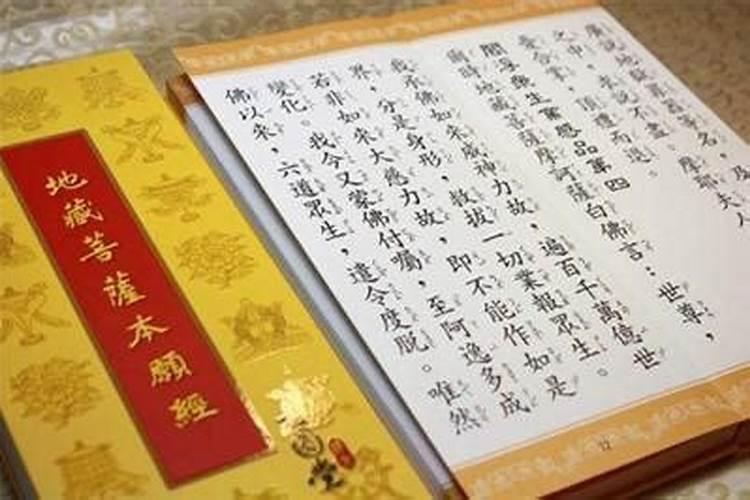 地藏菩薩本願經
廣說地獄罪報等名，及
之中，求說不盡。摩耶夫人
愁憂合掌，頂禮而退。
閻浮眾生業感品第四
爾時地藏菩薩摩訶薩白佛言：世尊，
我承佛如來威神力故，遍百千萬億世
界，分是身形，救拔一切業報眾生。
若非如來大慈力故，即不能作如是
變化。我今又蒙佛付囑，至阿逸多成
佛以來，六道眾生，遣令度脫。唯然
12